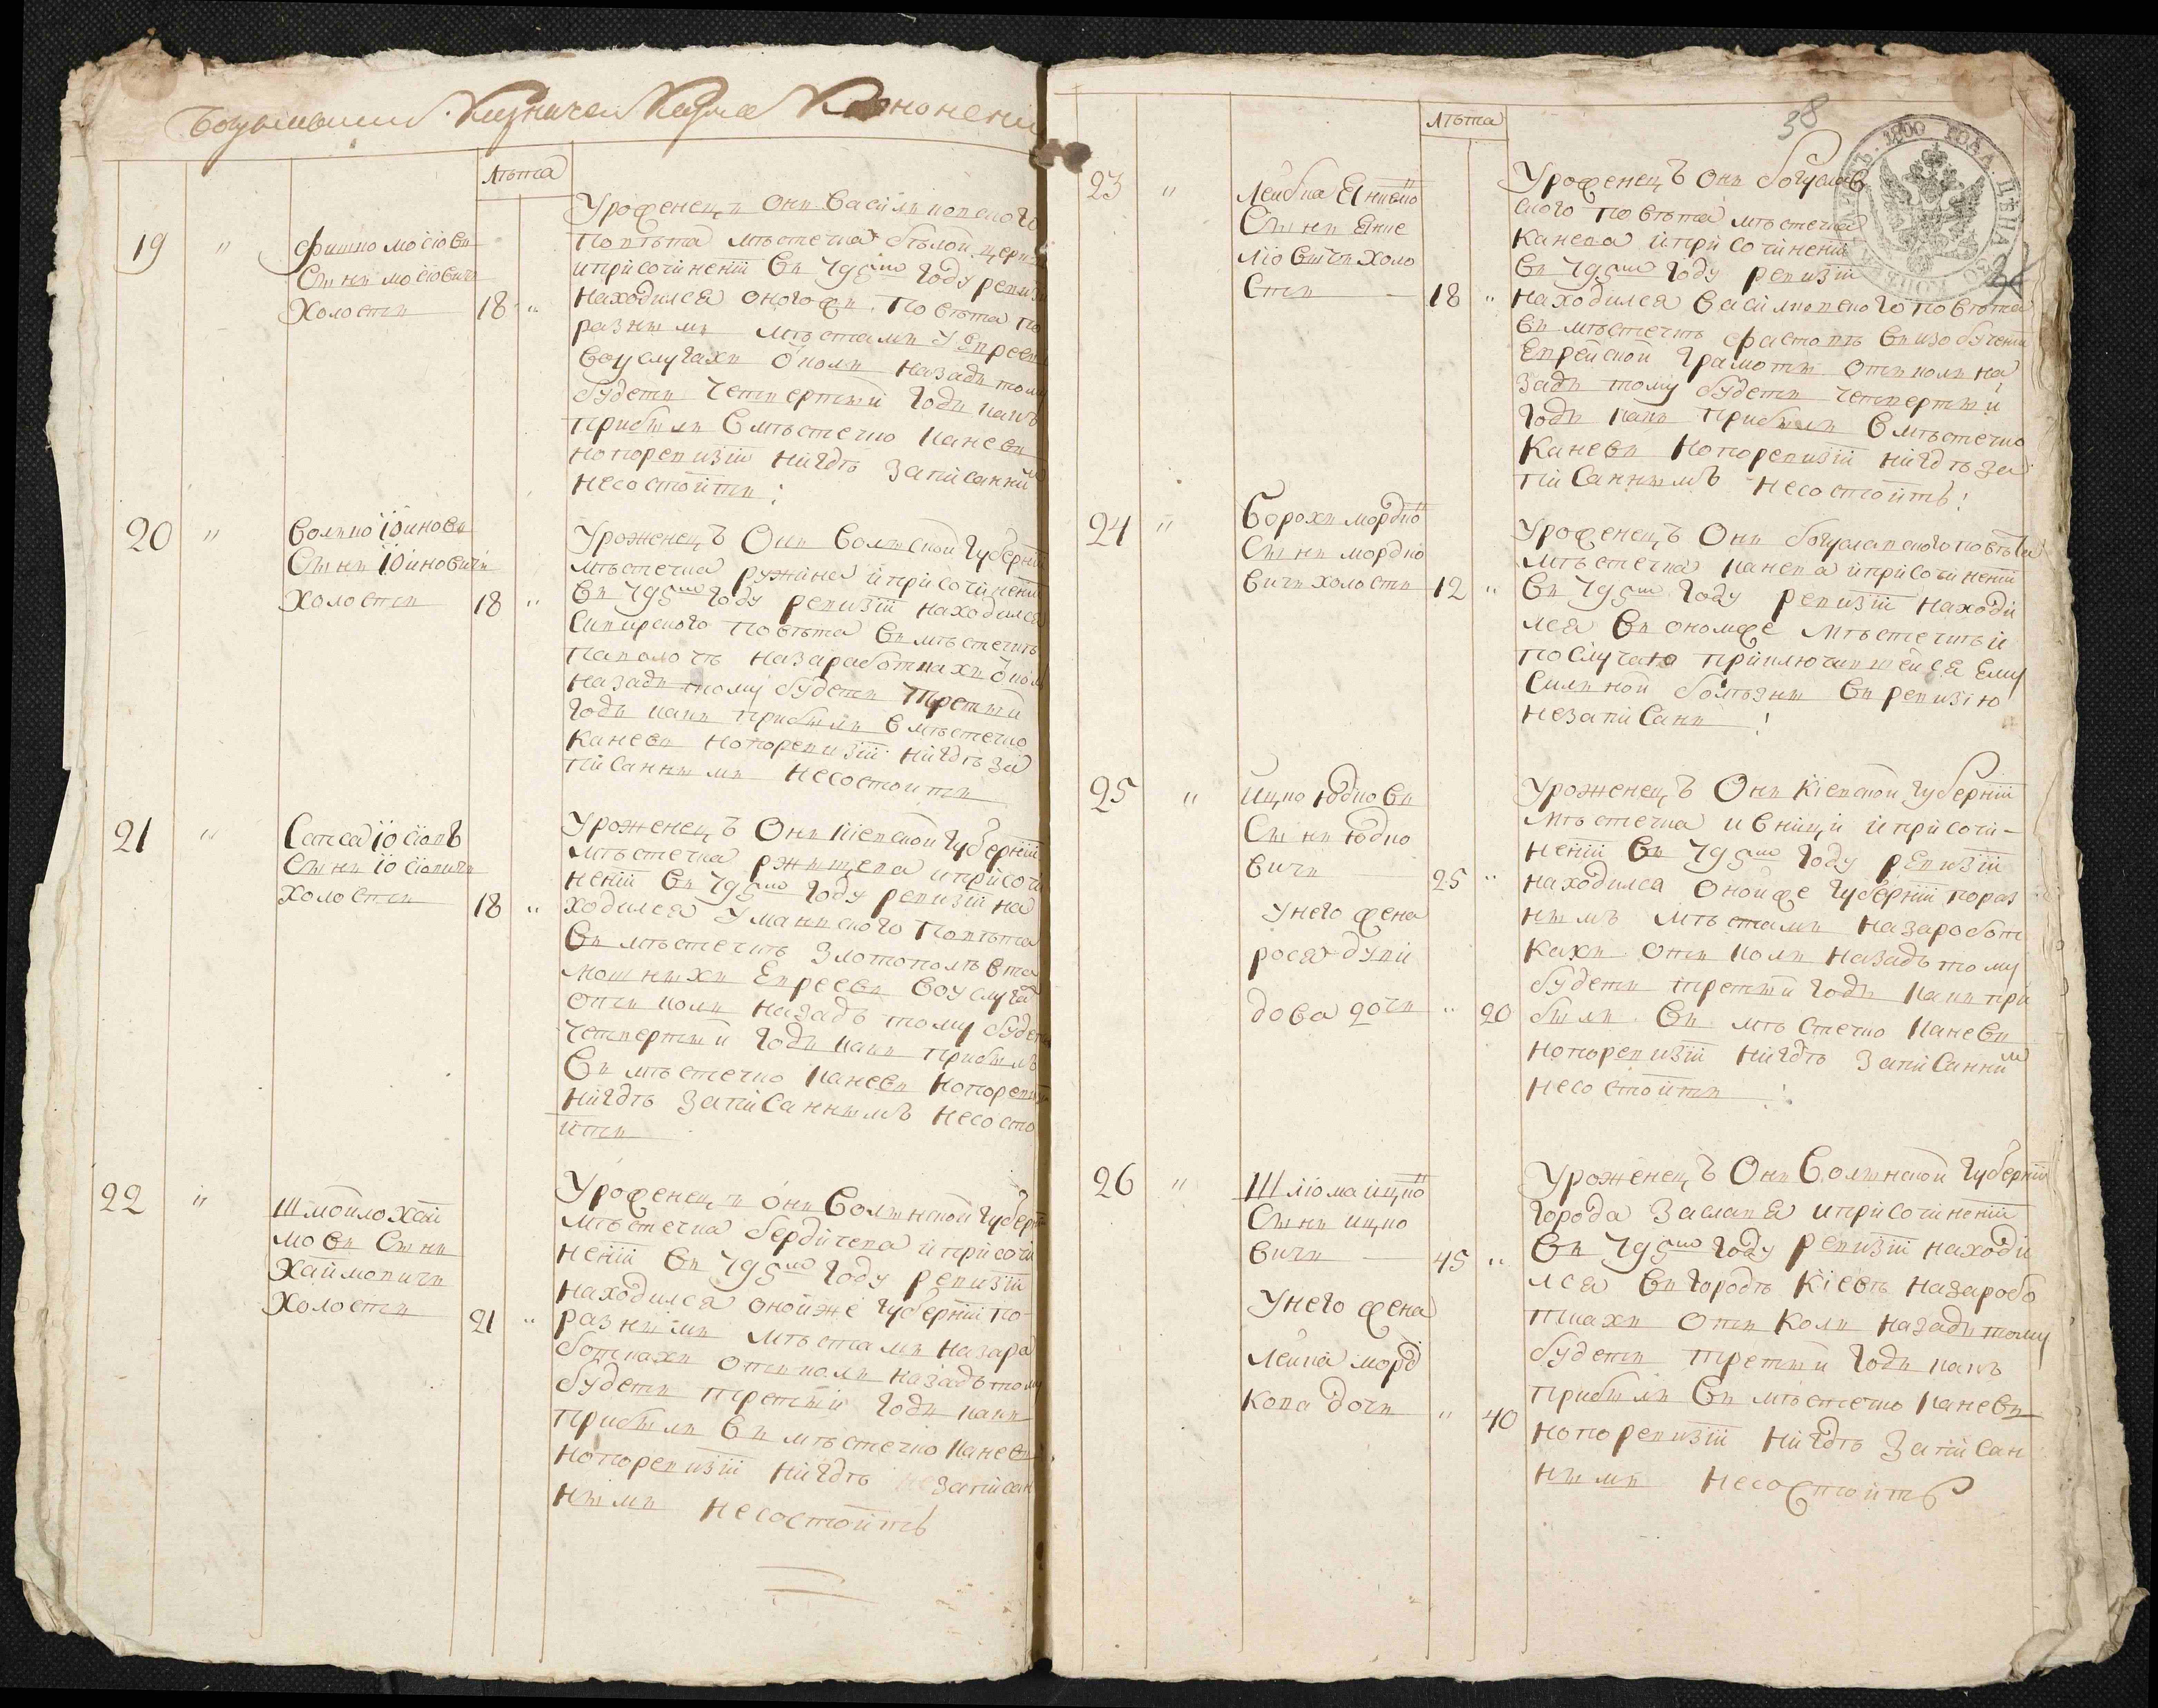 Казначей Карпа Кононенко
Лѣта
19 " Фишко Мосіовъ
Сынъ Мосіовичъ
Холостъ 18 "
Уроженецъ Онъ Василковского
Повѣта мѣстечка бѣлой церкви
ипри сочиненіи въ 795мъ году ревизіи
находился оногожъ повѣта по
разнымъ мѣстамъ у Евреевъ
воуслугахъ околъ назадъ тому
будетъ четвертый годъ какъ
прибылъ в мѣстечко Каневъ
нопоревизіи нигдѣ записаннымъ
несостоитъ:
20 " Волько Іоиновъ
Сынъ Іоиновичъ
Холостъ 18 "
Уроженецъ Онъ Волынской губерніи
мѣстечка ружина и при сочиненіи
въ 795мъ году ревизіи находился
Сквирского Повѣта въ мѣстечкѣ
Паволочѣ назаработкахъ околъ
назадъ тому будетъ третый
годъ какъ прибылъ в мѣстечко
Каневъ нопоревизіи нигдѣ за
писаннымъ несостоитъ
21 " Сапса Іосіовъ
Сынъ Іосіовичъ
холостъ 18 "
Уроженецъ Онъ Кіевской губерніи
мѣстечка ржищева ипри сочи
неніи въ 795мъ году ревизіи на
ходился Уманского Повѣта
въ мѣстечкѣ Златополѣ в та
мошныхъ Евреевъ воуслуга
отъ колъ назадъ тому будетъ
четвертый годъ какъ прибылъ
въ мѣстечко Каневъ нопоревизіи
нигдѣ записаннымъ несосто
итъ
22 " Шмойло Хай
мовъ Сынъ
Хаймовичъ
Холостъ 21 "
Уроженецъ онъ Волынской губерніи
мѣстечка бердичева и при сочи
неніи въ 795мъ году ревизіи
находился онойже губерніи по
разнымъ мѣстамъ назара
боткахъ отъ колъ назадъ тому
будетъ третый годъ какъ
прибылъ въ мѣстечко Каневъ
нопоревизіи нигдѣ записан
нымъ несостоитъ
38
1800 ГОДА. ЦѢНА
Лѣта
23 " Лейбка Янкеліо
Сынъ Янке
ліовичъ холо
стъ 18 "
Уроженецъ Онъ богуслав
ского повѣта мѣстечка
Канева и при сочиненіи
въ 795мъ году ревизіи
находился Василковского повѣта
въ мѣстечкѣ Фастовѣ въ изобученіи
Еврейской грамоты откколъ на
задъ тому будетъ четвертый
годъ какъ прибылъ в мѣстечко
Каневъ нопоревизіи нигдѣ за
писаннымъ несостоитъ!
24 " Борохъ Мордко
Сынъ Мордко
вичъ холостъ 12 "
Уроженецъ Онъ богуславского повѣта
мѣстечка Канева и присочиненіи
въ 795мъ году ревизіи находи
лся въ ономже мѣстечкѣ и
послучаю приключившейся Ему
Силной болѣзны въ ревизію
незаписанъ!
25 " Ицко Юдковъ
Сынъ Юдко
вичъ 25 "
Унего жена
рося дуви
дова дочъ " 20
Уроженецъ Онъ Кіевской губерніи
мѣстечка ивницѣ и при сочи-
неніи въ 795мъ году ревизіи
находился онойже губерніи пораз
нымъ мѣстамъ назаробот
кахъ отъ колъ назадъ тому
будетъ третый годъ какъ при
былъ въ мѣстечко Каневъ
нопоревизіи нигдѣ записаннымъ
несостоитъ:
26 " Шліома Ицко
Сынъ Ицко
вичъ 45 "
Унего жена
Лейка морд
кова дочъ " 40
Уроженецъ Онъ Волынской губерніи
города Заславя и при сочиненіи
въ 795мъ году ревизіи находи
лся въ городѣ Кіевѣ назаробо
ткахъ отъ колъ назадъ тому
будетъ третый годъ какъ
прибылъ въ мѣстечко Каневъ
нопоревизіи нигдѣ записан
нымъ несостоитъ